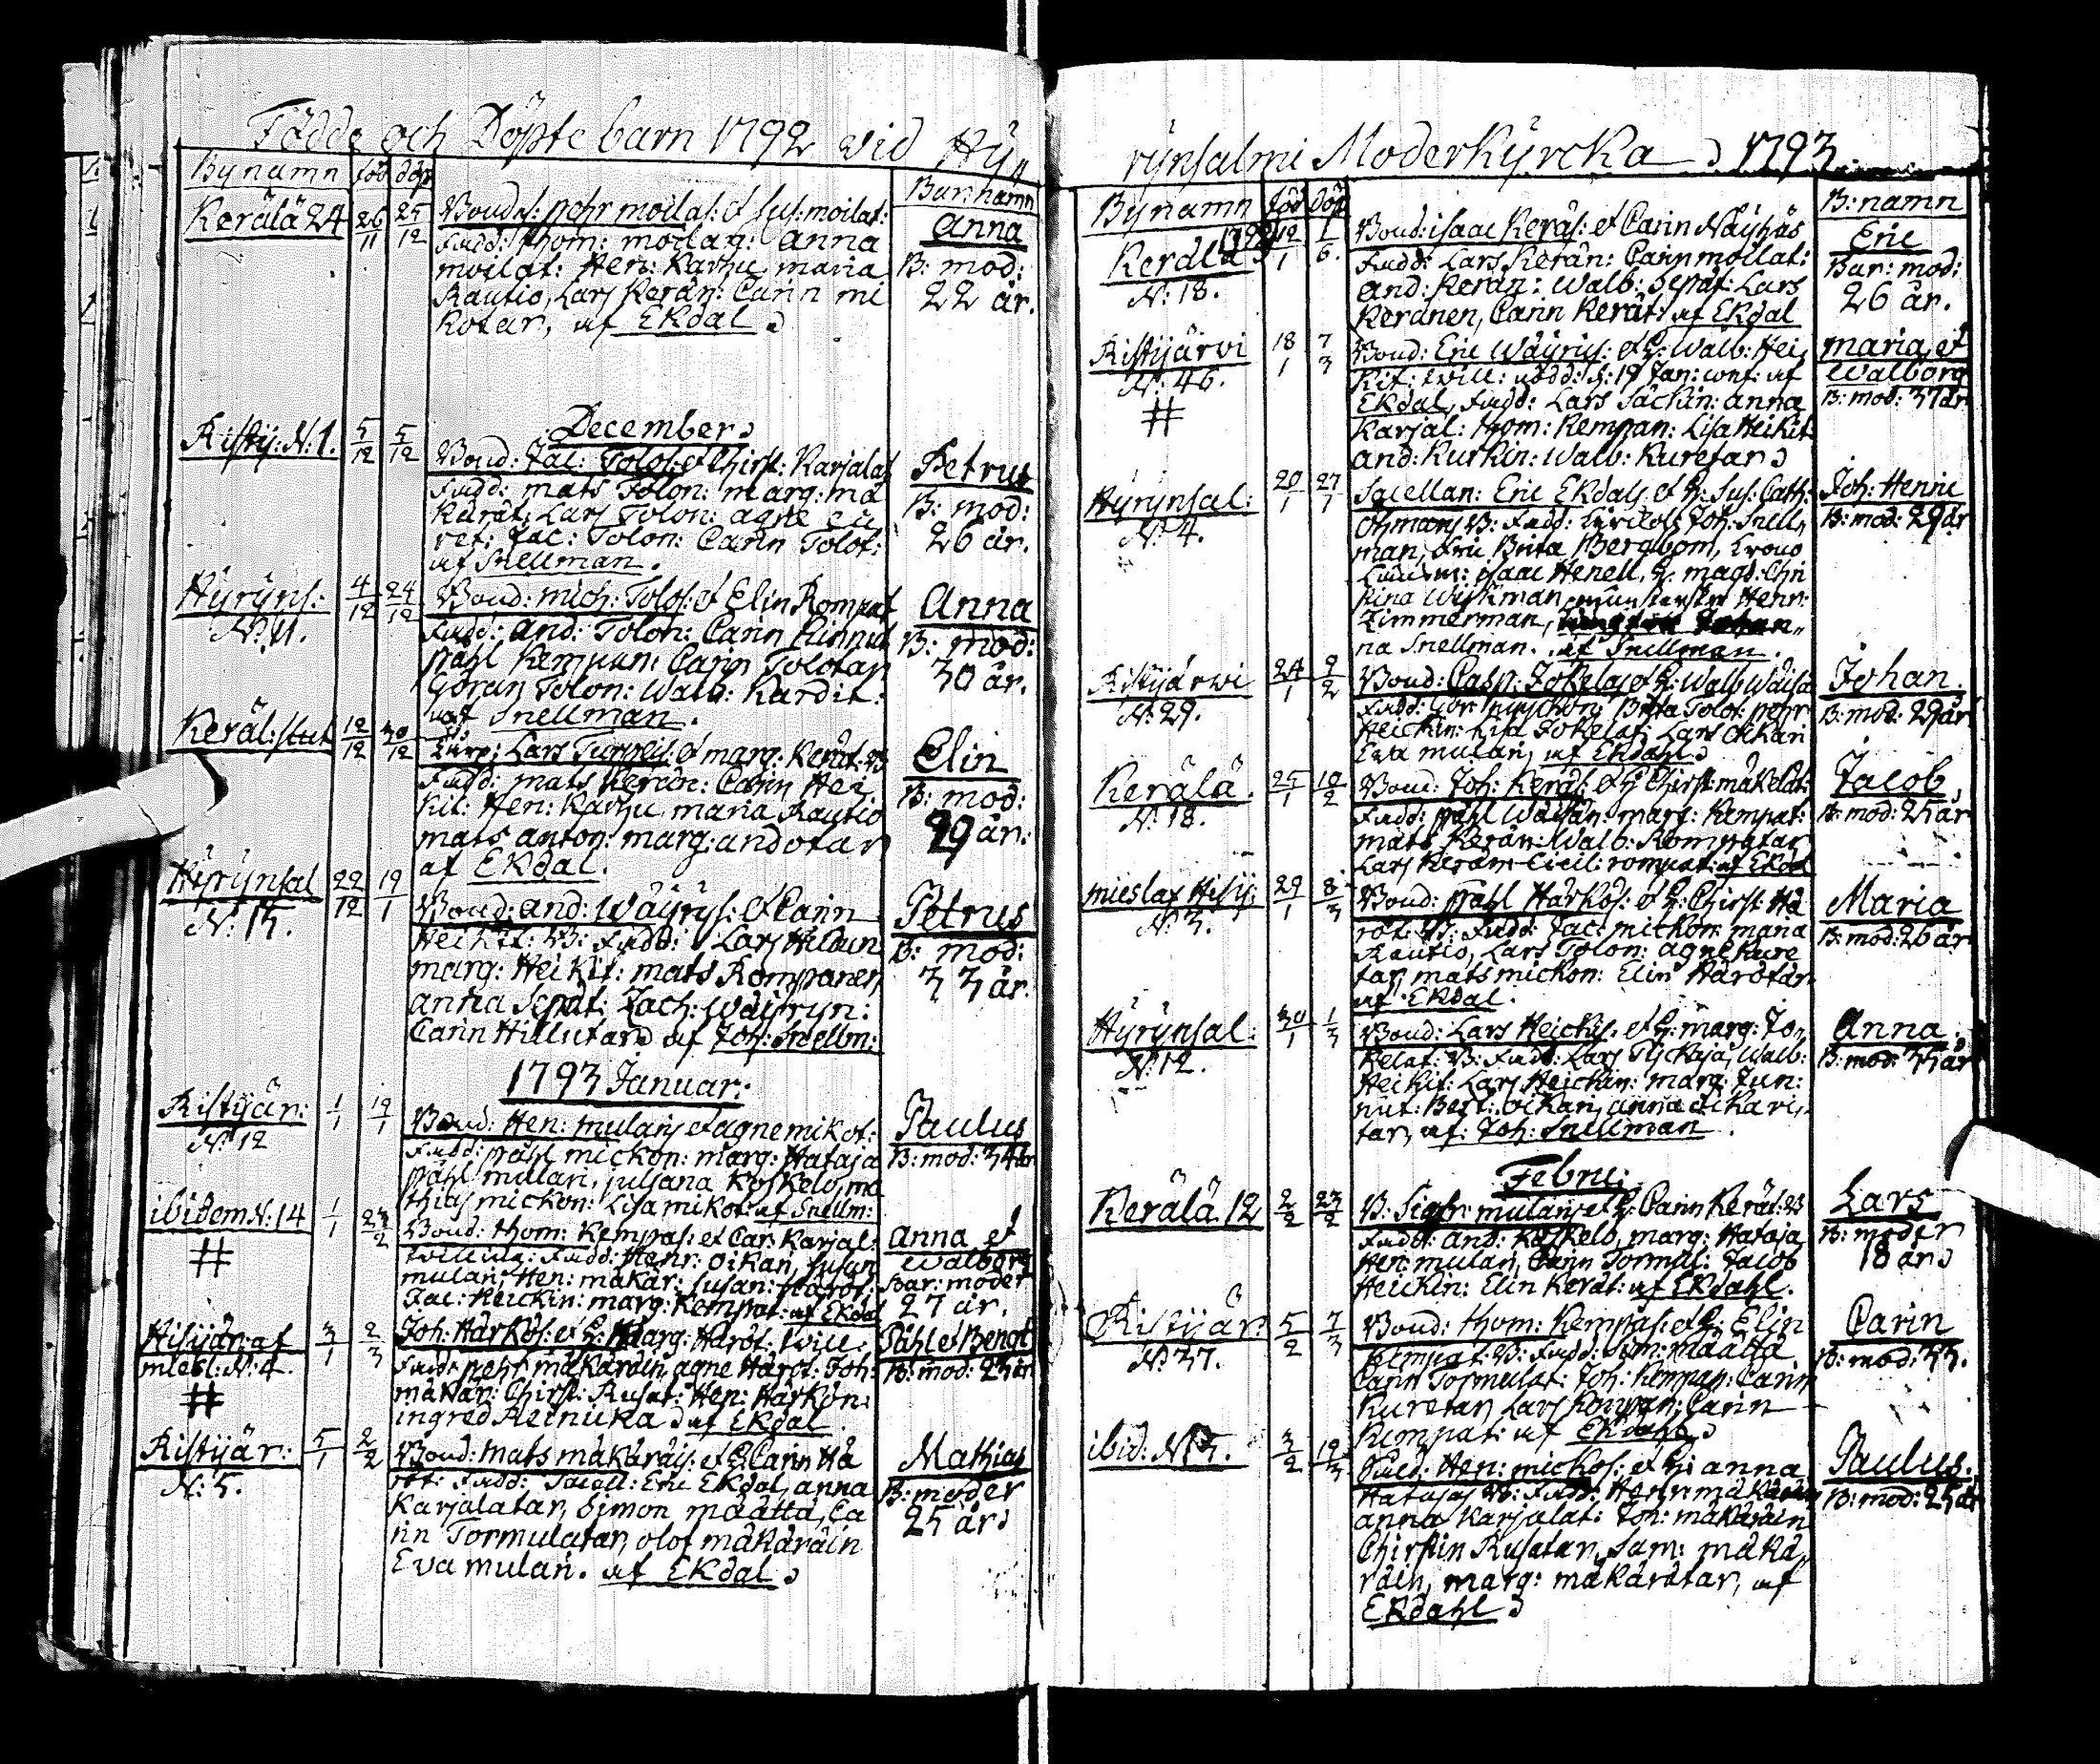 Födde och Döpte barn 1792 vid Hÿ„
Bynamn föd döp Barnhamn
Kerälä 24 26/11 25/12
Bond s: pehr moilas: et sus: moilat:
Fadd: thom: moilan: Anna
moilat: Hen: Karhu maria
Rautio, Lars Kerän: Carin mi
kotar, af Ekdal
Anna
B: mod:
22 år.
December
Risty: N: 1. 5/12 5/12
Bond: Jac: Tolos: et Chirst: Karjalat
Fadd: mats Tolon: marg: mä
kärät: Lars Tolon: agne cu
ret: Jac: Tolon: Carin Tolot:
af Snellman.
Petrus
B: mod:
26 år.
Hÿrÿns: N: 11. 4/12 24/12
Bond: mich: Tolos: et Elin Rompat
Fadd: And: Tolon: Carin Kinnut
påhl Kempan: Carin Tolotar
Göran Tolon: Walb: Kardit:
af Snellman.
Anna
B: mod:
30 år.
Keräl: stat 12/12 30/12
Lars Turneis: et marg: Kerät: B
Fadd: mats Kerän: Carin Hei
kit: Hen: Karhu maria Rautio
mats anton: marg: andotar
af Ekdal.
Elin
B: mod:
29 år:
Hÿrÿnsal N: 15. 22/12 19/1
Bond: and: Wäÿrys: et Carin
Heikit: B: Fadd: Lars Hildun
marg: Heikit: mats Rompanen,
anna Sepät: Zach: Wäÿryn:
Carin Hillutar af Joh: Snellm:
Petrus
B: mod:
33 år.
1793 Januar:
Ristyär: N: 12 1/1 19/1
Bond: Hen: mulans et agne mikot:
Fadd: påhl mickon: marg: Hataja
påhl mulari, juliana Koskelo, ma
thias mickon: Lisa mikot: af Snellm:
Paulus
B: mod: 34 år
ibidem N: 14 1/1 23/2
#
Bond: thom: Kempas: et Car: Karjal:
Fadd: Henr: oikan, susan
mulan; Hen: makar: susan: Häröt:
Jac: Heickin: marg: Kempat: af Ekdal
Anna et
Walborg
bar: moder
27 år.
Hisÿjän: af
miesl: N: 4 3/1 2/3
#
Joh: Härkös: et H: Marg: Häröt: twill:
Fadd: pehr mäkäräin, agne Häröt: Joh:
mäkär: Chirst: Rusat: Hen: Härkön:
ingred Reinicka af Ekdal
Påhl et Bengt
B: mod: 23 år
Ristijär: N: 5. 5/1 2/2
Bond: mats mäkäräis: et H: Carin Hä
röt: Fadd: Sacell: Eric Ekdal, anna
Karjalatar, Simon määttä, Ca
rin Tormulatar, olof mäkäräin
Eva mulari. af Ekdal
Mathias
B: moder
25 år
rÿnsalmi Moderkÿrcka 1793.
Bynamn föd döp B: namn
Kerälä N: 18. 1793 12/1 1/6
Bond: isaac Keräs: et Carin Näÿhäs
Fadd: Lars Kerän: Carin moilat:
And: Kerän: Walb: Sepät: Lars
Keränen, Carin Kerät: af Ekdal
Eric
Bar: mod:
26 år.
Ristijärvi N: 46. 18/1 7/3
#
Bond: Eric Wäyris: et H: Walb: Hei
kit: twill: nödd: d: 19 Jan: af
Ekdal, Fadd: Lars Säckin: anna
Karjal: thom: Kempan: Lisa Heikit
and: Kurkin: Walb: Kuretar
maria et
Walborg
B: mod: 37 år
Hÿrÿnsal: N: 4. 20/1 27/1
Sacellan: Eric Ekdals et H: Sus: Cath:
Öhmans B: Fadd: Joh: Snell„
man, Fru Brita Bergbom, Crono
isaac Henell, H. magd: Chri
stina Wijkman Henr:
Zimmerman,
na Snellman. af Snellman.
Joh: Henric
B: mod: 29 år
Ristijärwi N: 29. 24/1 2/2
Bond: Casp: Jokelas et H: Walb Wäisä
Fadd: Brita Tolot: pehr
Heickin: Lisa Jokelat: Lars oikari
Eva mulari, af Ekdahl
Johan.
B: mod: 29 år
Kerälä. N: 18. 25/1 10/2
Bond: Joh: Keräs: et H: Chirst: mäkelät:
Fadd: påhl Wäisän: marg: Kempat:
mats Kerän: Walb: Rompatar
Lars Kerän: Cicil: rompat: af Ekdal
Jacob,
B: mod: 25 år
mieslax Hisÿ: N: 3. 29/1 8/3
Bond: påhl Härkös: et H: Chirst: Hä
röt: B: Fadd: Jac: mickon: maria
Rautio, Lars Tolon: agne Kure
tar, mats mickon: Elin Härötär
af Ekdal.
Maria
B: mod: 26 år
Hÿrÿnsal: N: 12. 30/1 1/3
Bond: Lars Heickis. et H: marg: Jo„
kelat: B: Fadd: Lars Tijckäjä, Walb:
Heikit: Lars Heickin: marg: Jun:
nut: Bert: oikari, anna oikari„
tar, af: Joh: Snellman
Anna.
B: mod: 35 år
Febru:
Kerälä 12 2/2 23/2
B: Sigfr: mulans et H: Carin Kerät: B
Fadd: And: Koskelo, marg: Hataja
Hen: mulari, Carin Tormul: Jacob
Heickin: Elin Kerät: af Ekdahl.
Lars
B: moder
18 år
Ristijär: N: 37. 5/2 7/3
Bond: thom: Kempas: et H: Elin
Kempat: B: Fadd: Sim: määttä
Carin Tormulat: Joh: Kempan: Carin
Kuretar, Lars Carin
Kempat: af Ekdahl
Carin
B: mod: 33.
ibid: N: 5. 3/2 19/3
Bond: Hen: mickos: et H: anna
Hatajas B: Fadd: Henr: mäkäräin
anna Karjalat: Joh: mäkäräin
Chirstin Rusatar, Sam: mäkä„
räin, marg: mäkärätar, af
Ekdahl
Paulus.
B: mod: 25 år